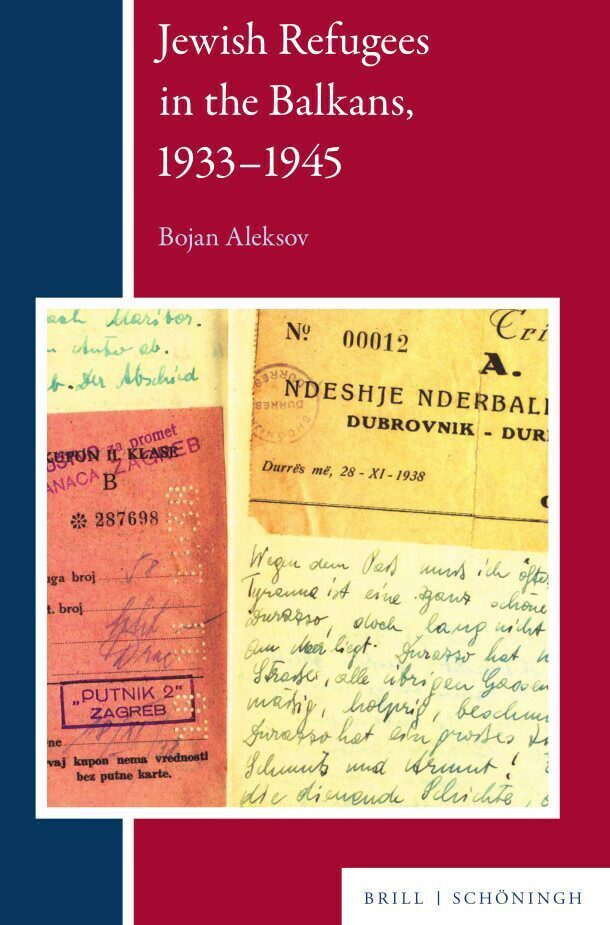 Jewish Refugees
in the Balkans,
1933–1945
Bojan Aleksov
ach Maribor.
ab.
b. Der Abschied
za promet
KUPON II. KLASE
ZAGREB
B
✻ 287698
ga broj
t. broj
„PUTNIK 2"
ZAGREB
ne
vaj kupon nema vrednosti
bez putne karte.
Nº 00012
A.
DURRËS
NDESHJE NDERBALL
DUBROVNIK - DUR
Durrës më, 28 - XI - 1938
Wegen dem Paß muss ich öfte
Tyranna ist eine ganz schöne
Durazzo, doch lang nicht
am Meer liegt. Durazzo hat
Straße, alle übrigen Gassen
mäßig, holprig, beschmu
Durazzo hat ein großes
Schmutz und Armut!
die dienende Schichte,
BRILL | SCHÖNINGH